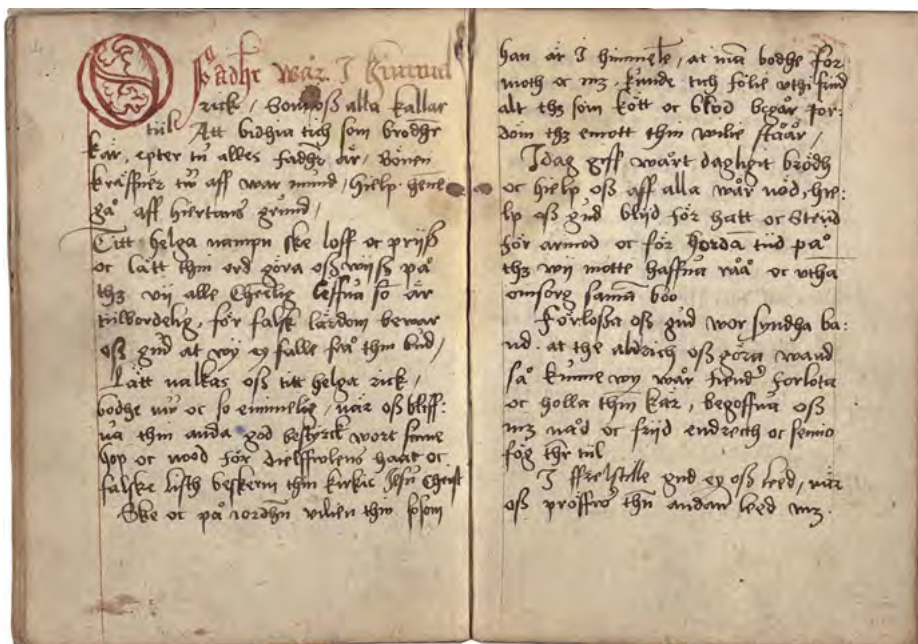 O fadhr wår I himmel
rick, Som oß alla kallar
tiile Att bidhia tich som brodhr
kär, epter tu alles fadhr är, Bönen
kräffuer tw aff war mund, hielp
gå aff hiertans grund,
Titt helga nampn ske loff oc prijß
oc lätt thin ord göra oß wijß på
thz vij alle Cherlig leffua so är
tiilbordelig, för falsk lärdom bewar
oß gud at wij ey falle frå thin bud,
Lätt nalkas oß titt helga rick,
bodhe nu oc so eminnelig, när oß bliff:
ua thin anda god bestyrck wort sinne
hop oc mood för dieffwolens haat oc
falske listh beskerm thin kirkie Jesu Christ
Ske oc på iordhen vilien thin såsom
han är I himmele, at må bodhe för
moth oc mz. kunde tich fölie vthi sind
alt thz som kött oc blod begår for:
döm thz emott thin wilie står,
Idag giff wårt dagligit brödh
oc hielp oß aff alla wår nöd, hie:
lp oß gud blijd för hatt oc Strid
för armod oc för horda tiid på
thz wij motte haffua råå oc vtha
omsorg sama boo
Förlossa oß gud wor syndha ba:
nd. at the aldrich oß göra wand
så kunne wy wår fiend forlota
oc holla thm kär, begoffua oß
mz nåd oc friid endrecth oc
fög thr tiil
I ffrelstille gud ey oß leed, när
oß pröffwr thn andan leed mz.